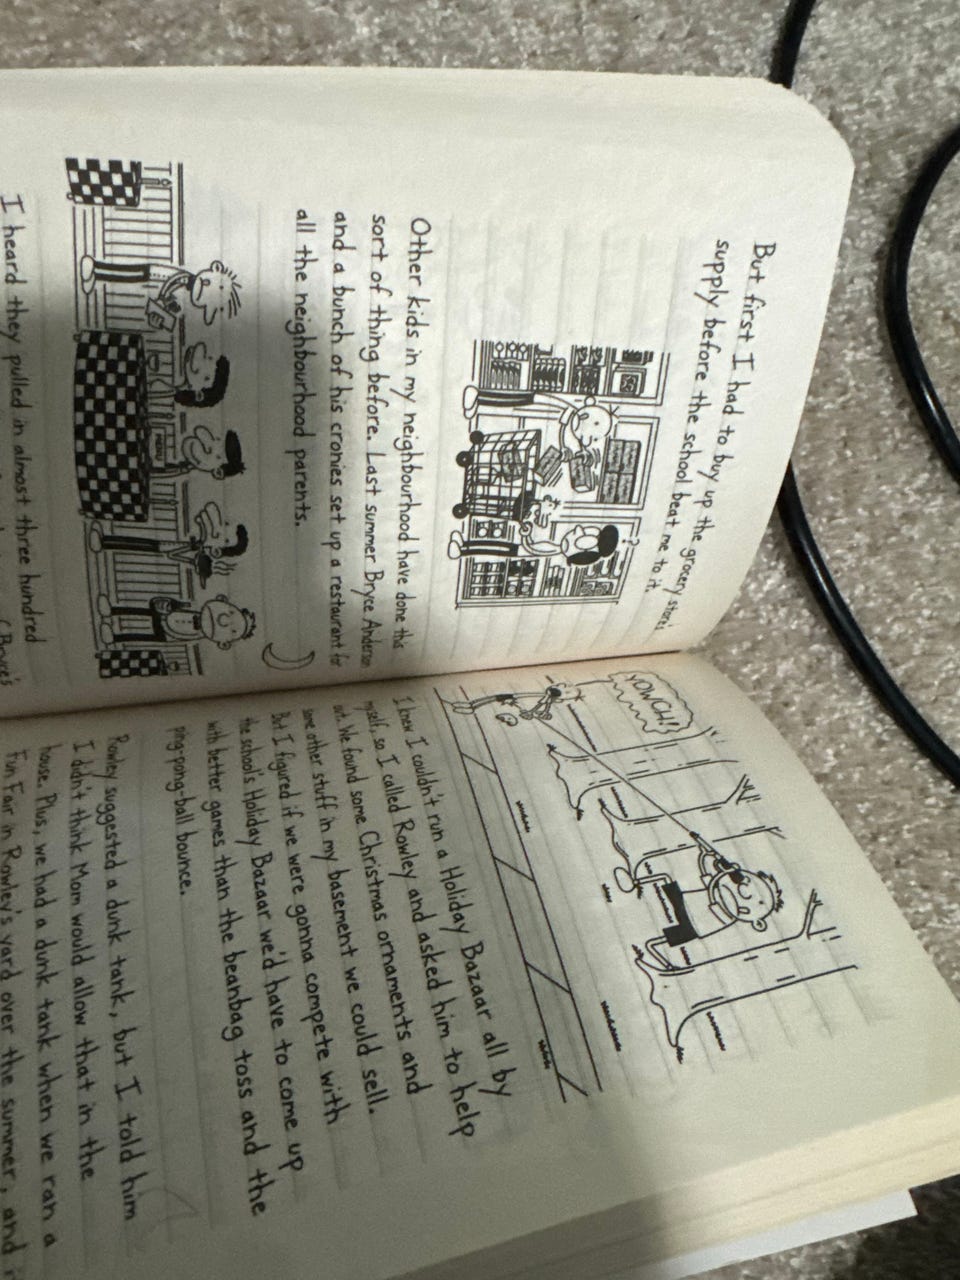 But first I had to buy up the grocery store's
supply before the school beat me to it.
Other kids in my neighbourhood have done this
sort of thing before. Last summer Bryce Anderson
and a bunch of his cronies set up a restaurant for
all the neighbourhood parents.
MENU
I heard they pulled in almost three hundred
YOWCH!!
I knew I couldn't run a Holiday Bazaar all by
myself, so I called Rowley and asked him to help
out. We found some Christmas ornaments and
some other stuff in my basement we could sell.
But I figured if we were gonna compete with
the school's Holiday Bazaar we'd have to come up
with better games than the beanbag toss and the
ping-pong-ball bounce.
Rowley suggested a dunk tank, but I told him
I didn't think Mom would allow that in the
house. Plus, we had a dunk tank when we ran a
Fun Fair in Rowley's yard over the summer, and